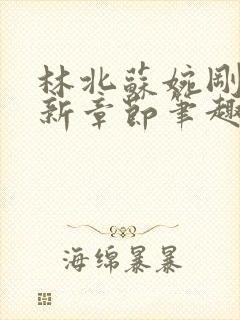 林北蘇婉剛
新章節筆趣
海绵暴暴